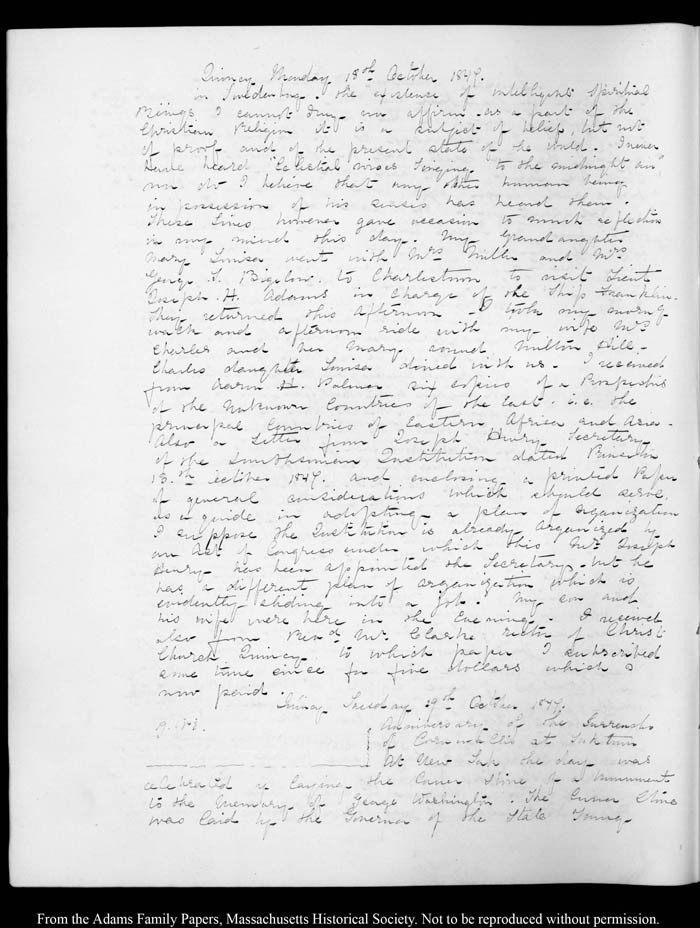 Quincy Monday 18th October 1847.
in Swedenborg. The existence of intelligent Spiritual
Beings I cannot deny or affirm. As a part of the
Christian Religion it is a subject of belief, but not
of proof and of the present state of the world. I never
have heard "Celestial voices Singing to the midnight air"
nor do I believe that any other human being
in possession of his senses has heard them.
These lines however gave occasion to much reflection
in my mind this day. My Grandaughter
Mary Louisa went with Mrs Miller and Mrs
George T. Bigelow to Charlestown to visit Lieut
Joseph. H. Adams in charge of the Ship Franklin.
They returned this afternoon I took my morng
walk and afternoon ride with my wife Mrs
Charles and her Mary round Milton Hill.
Charles daughter Louisa dined with us. I received
from Aaron H. Palmer six copies of a Prospectus
of the Unknown Countries of the East. i.e. the
principal Countries of Eastern Africa and Asia.
Also a Letter from Joseph Henry Secretary
of the Smithsonian Institution dated
13th October 1847. and enclosing a printed Paper
of general considerations which should serve
as a guide in adopting a plan of organization
I suppose the Institution is already organized by
an Act of Congress under which this Mr Joseph
Henry has been appointed the Secretary. but he
has a different plan of organization which is
evidently sliding into a job. My son and
his wife were here in the Evening. I received
also from Revd Mr Clarke rector of Christ
Church Quincy to which paper I subscribed
some time since for five dollars which I
now paid.
Quincy Tuesday 19th October 1847.
Anniversary of the Surrender
of Cornwallis at
At New the day was
celebrated by laying the Corner Stone of a Monument
to the Memory of George Washington. The Corner Stone
was laid by the Governor of the State Young
From the Adams Family Papers, Massachusetts Historical Society. Not to be reproduced without permission.